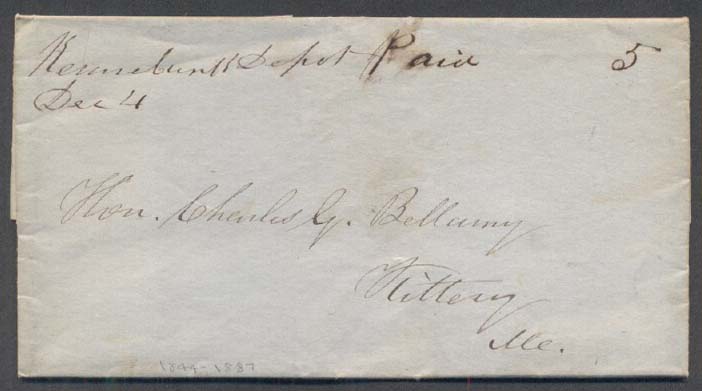 Kennebunk Depot Paid 5
Dec 4
Hon. Charles G. Bellamy
Kittery
Me.
1844-1887